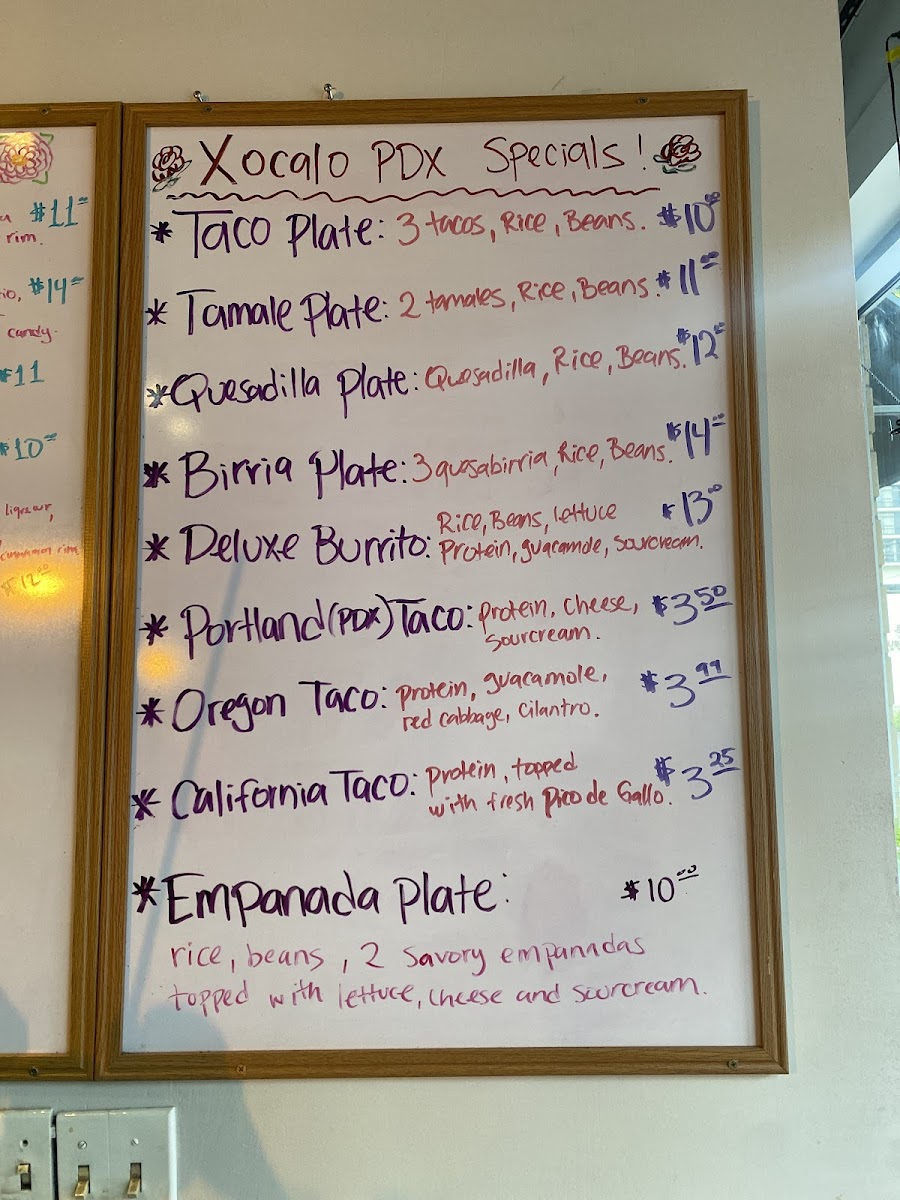 $11⁼
rim.
$14⁼
candy.
$11
$10⁼
liqueur,
cinnamon rim
$12⁰⁰
Xocalo PDX Specials!
* Taco Plate: 3 tacos, Rice, Beans. $10⁰⁰
* Tamale Plate: 2 tamales, Rice, Beans. $11⁰⁰
* Quesadilla Plate: Quesadilla, Rice, Beans. $12⁰⁰
* Birria Plate: 3 quesabirria, Rice, Beans. $14⁰⁰
* Deluxe Burrito: Rice, Beans, lettuce $13⁰⁰
Protein, guacamole, sourcream.
* Portland (PDX) Taco: protein, cheese, $3⁵⁰
sourcream.
* Oregon Taco: protein, guacamole, $3⁹⁹
red cabbage, cilantro.
* California Taco: protein, topped $3²⁵
with fresh Pico de Gallo.
* Empanada Plate: $10⁰⁰
rice, beans, 2 savory empanadas
topped with lettuce, cheese and sourcream.